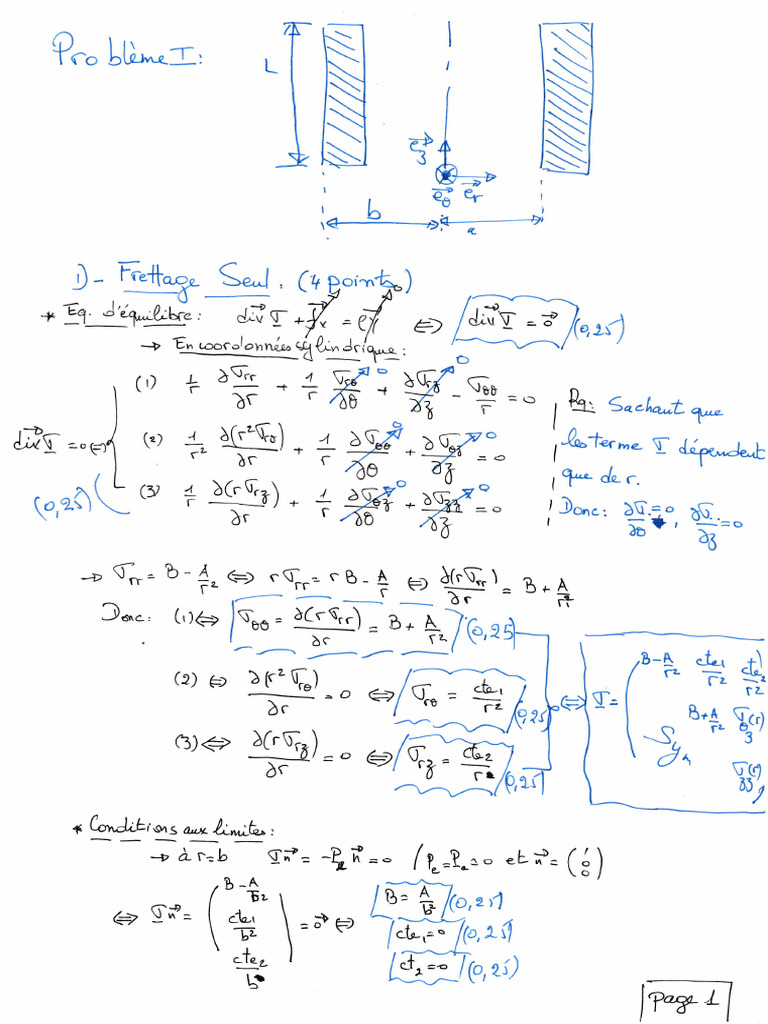 Problème I:
L
e⃗3
e⃗θ
e⃗r
b
a
1)- Frettage Seul. (4 points)
* Eq. d'équilibre: div⃗ σ + f⃗v = ργ⃗ 0 ⇔ div⃗ σ = 0⃗ (0,25)
→ En coordonnées cylindrique:
(1) 1/r ∂σrr/∂r + 1/r σrθ/∂θ 0 + ∂σrz/∂z 0 - σθθ/r = 0
div⃗ σ = 0 ⇔ (2) 1/r² ∂(r²σrθ)/∂r + 1/r ∂σθθ/∂θ 0 + ∂σθz/∂z 0 = 0
(3) 1/r ∂(rσrz)/∂r + 1/r ∂σθz/∂θ 0 + ∂σzz/∂z 0 = 0
(0,25)
Rq: Sachant que
les terme σ dépendent
que de r.
Donc: ∂σ../∂θ = 0, ∂σ../∂z = 0
→ σrr = B - A/r² ⇔ rσrr = rB - A/r ⇔ ∂(rσrr)/∂r = B + A/r²
Donc: (1) ⇔ σθθ = ∂(rσrr)/∂r = B + A/r² (0,25)
(2) ⇔ ∂(r²σrθ)/∂r = 0 ⇔ σrθ = cte1/r² (0,25)
(3) ⇔ ∂(rσrz)/∂r = 0 ⇔ σrz = cte2/r (0,25)
⇔ σ = ( B - A/r² cte1/r² cte2/r²
B + A/r² σθ3(r)
Sym σ33(r) )
* Conditions aux limites:
→ à r = b σn⃗ = -Pe n⃗ = 0 / Pe = Pa = 0 et n⃗ = (1 0 0)
⇔ σn⃗ = ( B - A/b² cte1/b² cte2/b ) = 0⃗ ⇔
B = A/b² (0,25)
cte1 = 0 (0,25)
ct2 = 0 (0,25)
page 1